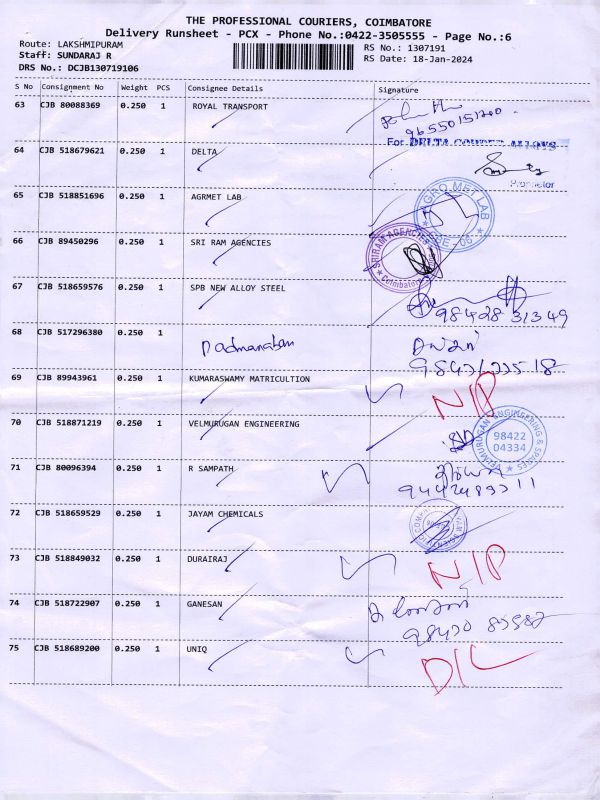 THE PROFESSIONAL COURIERS, COIMBATORE
Delivery Runsheet - PCX - Phone No.:0422-3505555 - Page No.:6
Route: LAKSHMIPURAM RS No.: 1307191
Staff: SUNDARAJ R RS Date: 18-Jan-2024
DRS No.: DCJB130719106
S No Consignment No Weight PCS Consignee Details Signature
63 CJB 80088369 0.250 1 ROYAL TRANSPORT
96550151200
For DELTA COVERED ALLOYS
64 CJB 518679621 0.250 1 DELTA
Proprietor
65 CJB 518851696 0.250 1 AGRMET LAB
GRO MET LAB
CBE - 06
66 CJB 89450296 0.250 1 SRI RAM AGENCIES
SRIRAM AGENCIES
Coimbatore
67 CJB 518659576 0.250 1 SPB NEW ALLOY STEEL
98428 31349
68 CJB 517296380 0.250 1 Padmanaban
69 CJB 89943961 0.250 1 KUMARASWAMY MATRICULTION N/P
70 CJB 518871219 0.250 1 VELMURUGAN ENGINEERING
VELMURUGAN ENGINEERING & SPARES
98422
04334
71 CJB 80096394 0.250 1 R SAMPATH
72 CJB 518659529 0.250 1 JAYAM CHEMICALS
73 CJB 518849032 0.250 1 DURAIRAJ N/P
74 CJB 518722907 0.250 1 GANESAN
75 CJB 518689200 0.250 1 UNIQ D/L